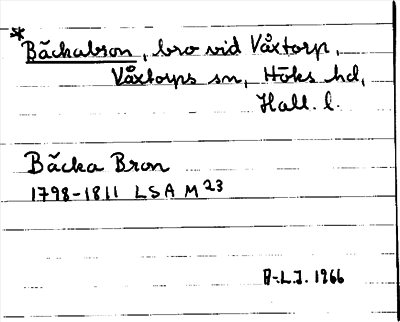 *Bäckabron, bro vid Våxtorp,
Våxtorps sn, Höks hd,
Hall. l.
Bäcka Bron
1798-1811 LSA M 23
B-L.J. 1966